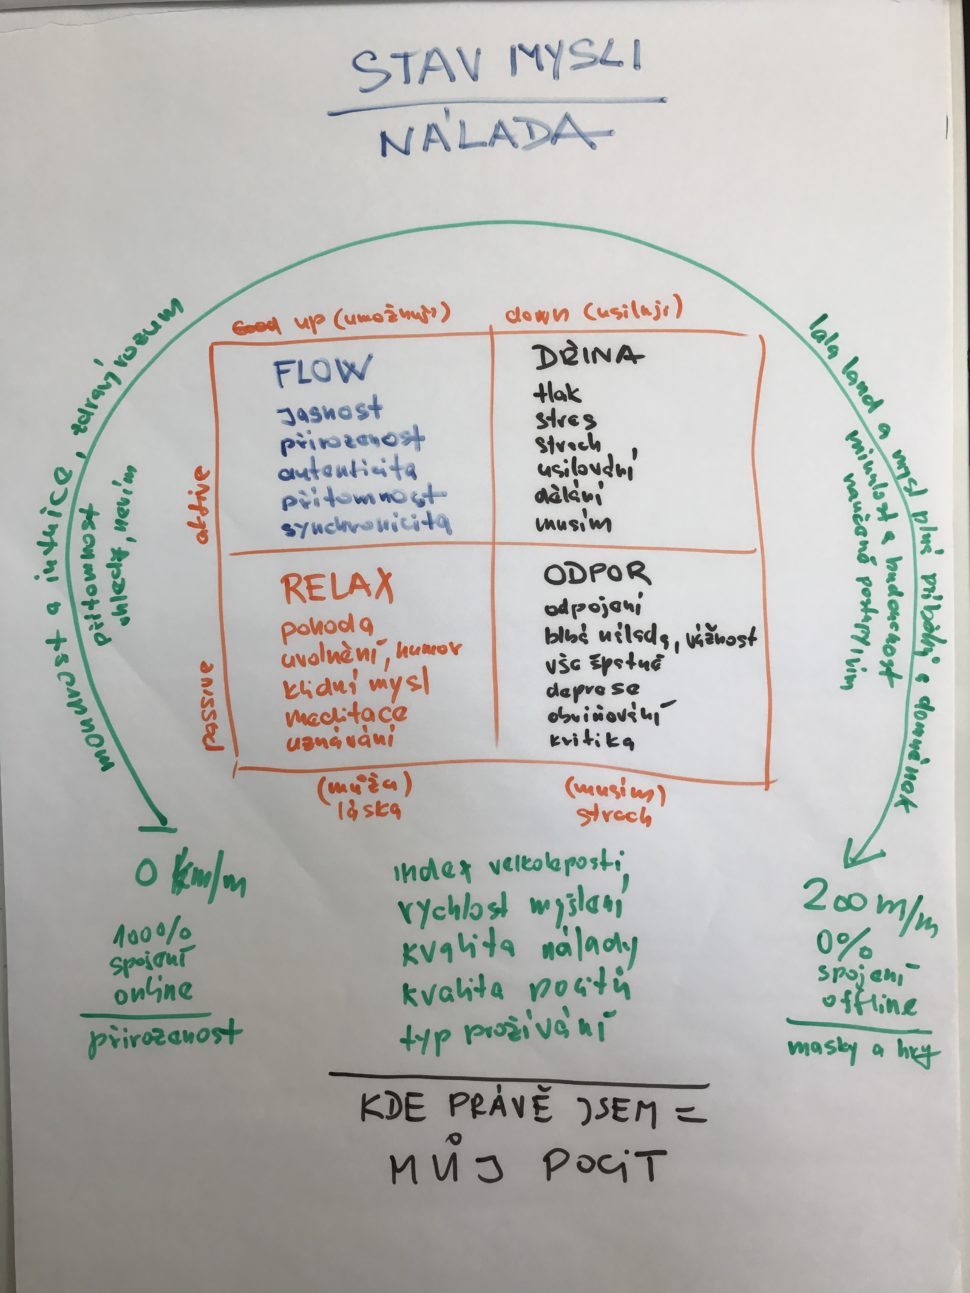 STAV MYSLI
NÁLADA
moudrost a intuice, zdravý rozum
přítomnost
vhledy, nevím
lala land a mysl plná příběhů a domněnek
minulost a budoucnost
naučené postupy/vím
up (umožňuji)
down (usiluji)
aktive
passive
FLOW
jasnost
přirozenost
autenticita
přítomnost
synchronicita
DŘINA
tlak
stres
strach
usilování
dělání
musím
RELAX
pohoda
uvolnění, humor
klidní mysl
meditace
uznávání
ODPOR
odpojení
blbá nálada, vážnost
vše špatně
deprese
obviňování
kritika
(můžu)
láska
(musím)
strach
0 km/m
100%
spojení
online
přirozenost
index velkoleposti,
rychlost myšlení
kvalita nálady
kvalita pocitů
typ prožívání
200 m/m
0%
spojení
offline
masky a hry
KDE PRÁVĚ JSEM =
MŮJ POCIT